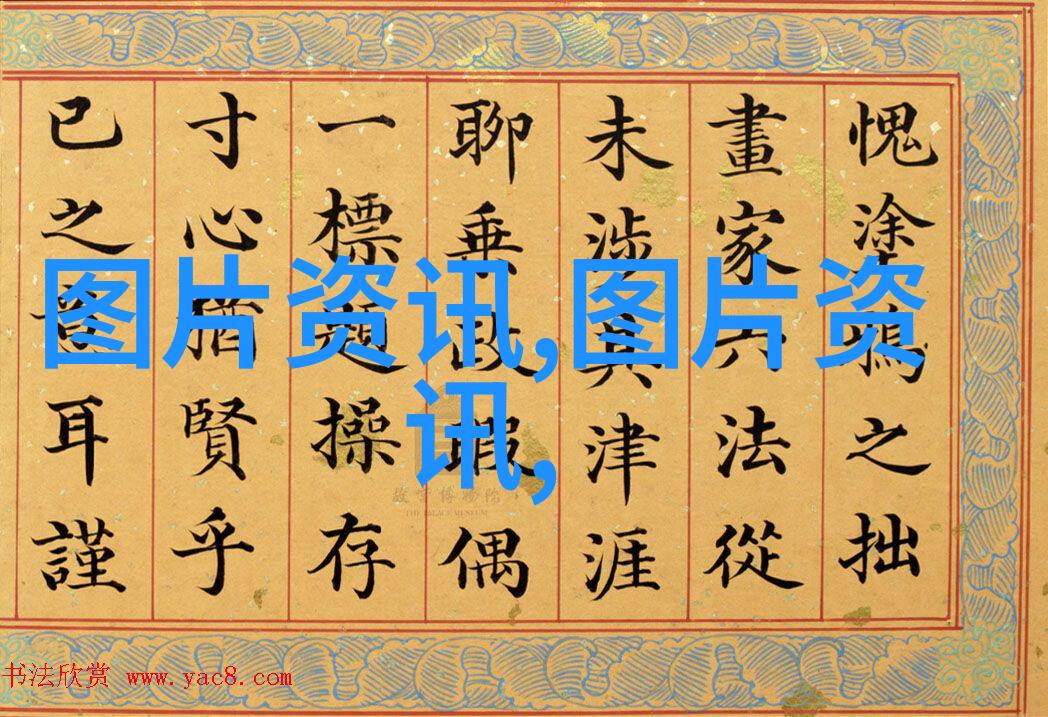 愧塗鴉之拙
畫家六法從
未涉其津涯
聊乗政暇偶
一標題操存
寸心猶賢乎
已之意耳謹
图片资讯,图片资
讯,
故宫博物院
THE PALACE MUSEUM
书法欣赏 www.yac8.com